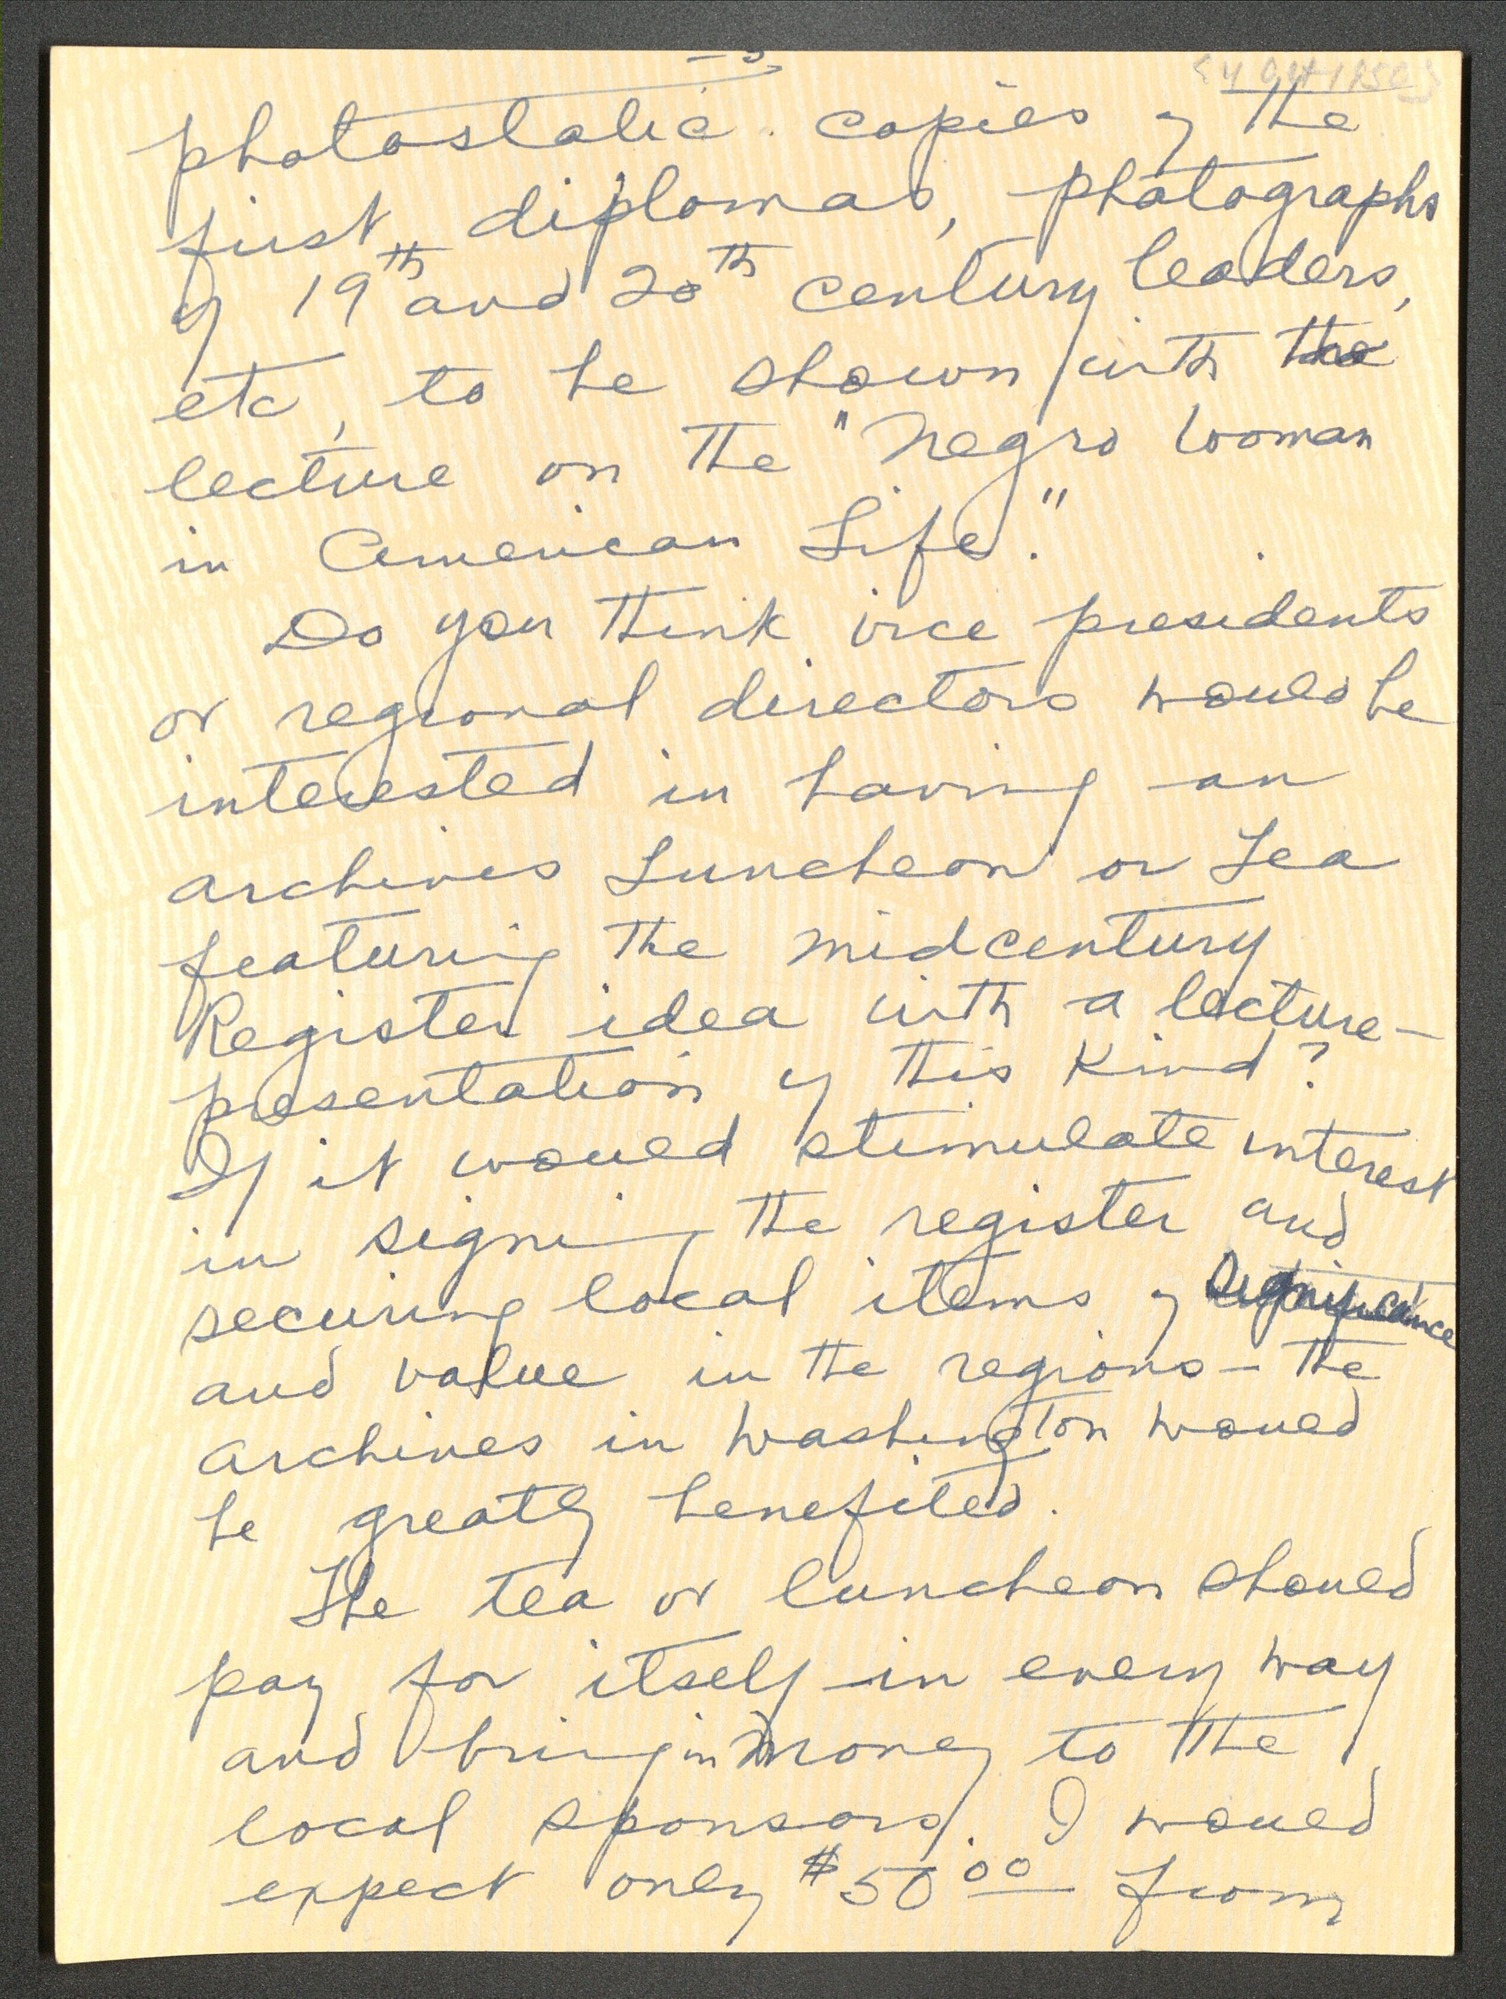 -3-
{4 Oct 1950}
photostatic copies of the
first diplomas, photographs
of 19th and 20th century leaders,
etc, to be shown with the
lecture on the "Negro Woman
in American Life."
Do you think vice presidents
or regional directors would be
interested in having an
archives Luncheon or Tea
featuring the midcentury
Register idea with a lecture-
presentation of this kind?
If it would stimulate interest
in signing the register and
securing local items of significance
and value in the regions – the
archives in Washington would
be greatly benefited.
The tea or luncheon should
pay for itself in every way
and bring in money to the
local sponsors. I would
expect only $50 00 from